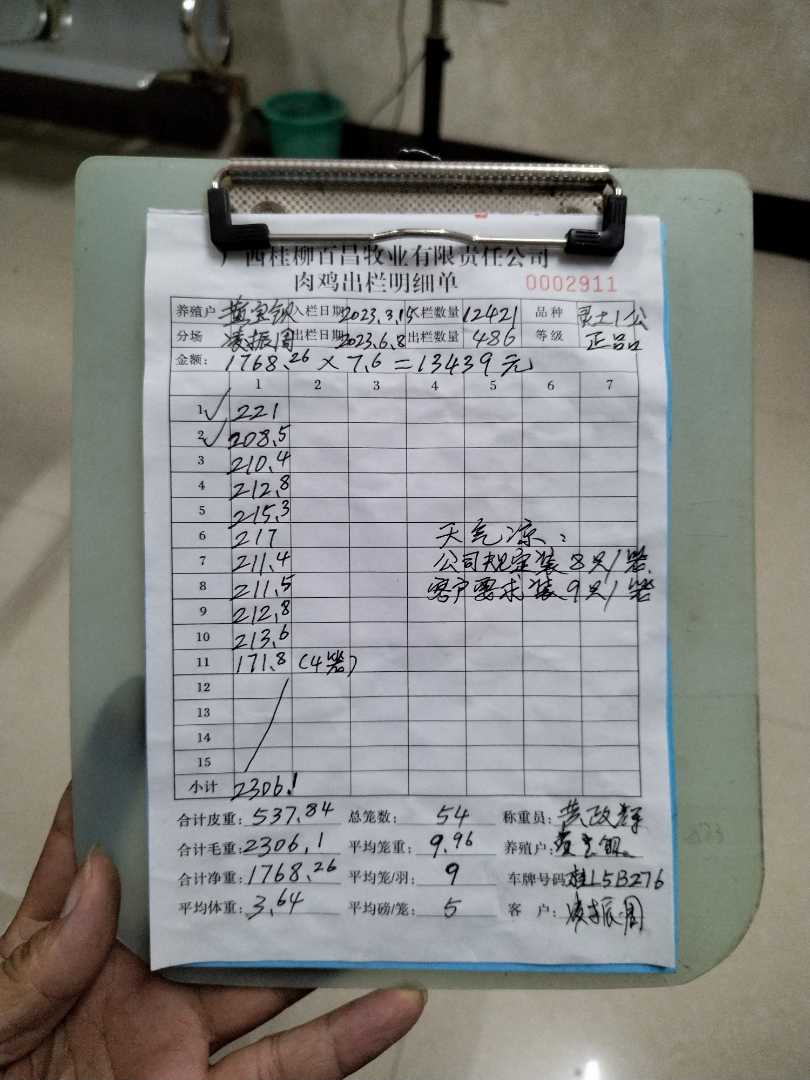 广西桂柳百昌牧业有限责任公司
肉鸡出栏明细单 0002911
养殖户 入栏日期 2023.3.15 入栏数量 12421 品种 土1公
分场 凌振周 出栏日期 2023.6.8 出栏数量 486 等级 正品
金额: 1768.26 × 7.6 = 13439元
1 2 3 4 5 6 7
1 221
2 208.5
3 210.4
4 212.8
5 215.3
6 217 天气凉:
7 211.4 公司规定装8只/笼.
8 211.5 客户要求装9只/笼
9 212.8
10 213.6
11 171.8 (4笼)
12
13
14
15
小计 2306.1
合计皮重: 537.84 总笼数: 54 称重员: 黄政辉
合计毛重: 2306.1 平均笼重: 9.96 养殖户:
合计净重: 1768.26 平均笼/羽: 9 车牌号码 桂L5B276
平均体重: 3.64 平均磅/笼: 5 客 户: 凌振周